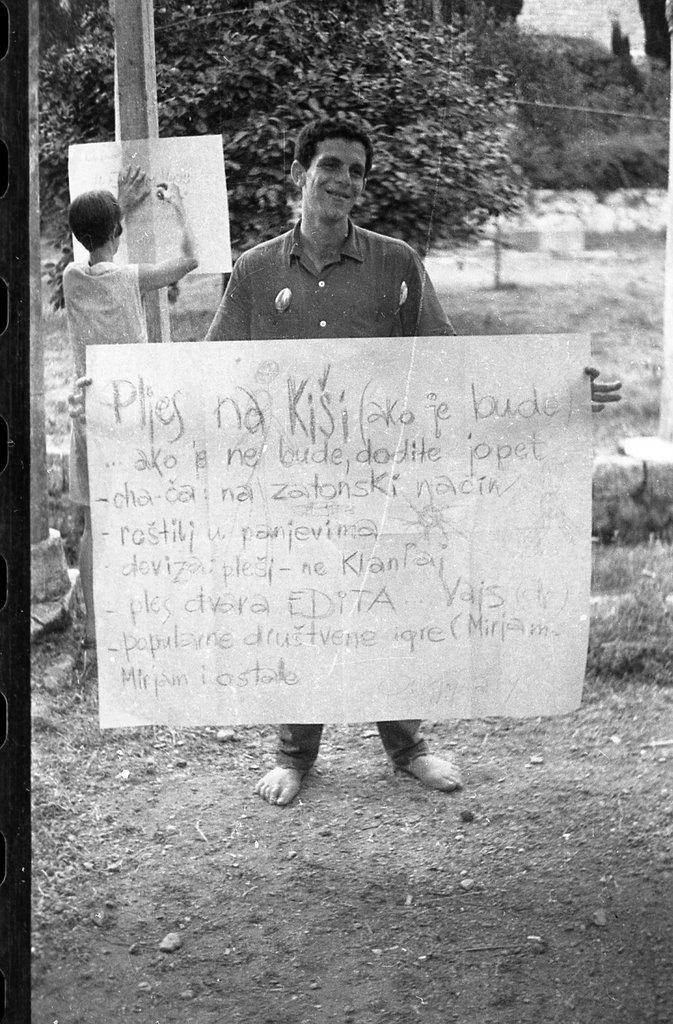 Pljes na KiŠi (ako je bude)
... ako je ne bude, dodite jopet
- cha-ča na zatonski način
- roštilj u panjevima
- deviza: pleši - ne Klanfaj
- ples otvara EDiTA ... Vajs (dr)
- popularne društvene igre (Mirjam-
Mirjam i ostale